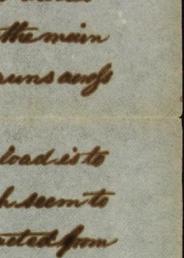 the main
runs across
load is to
h seem to
acted from